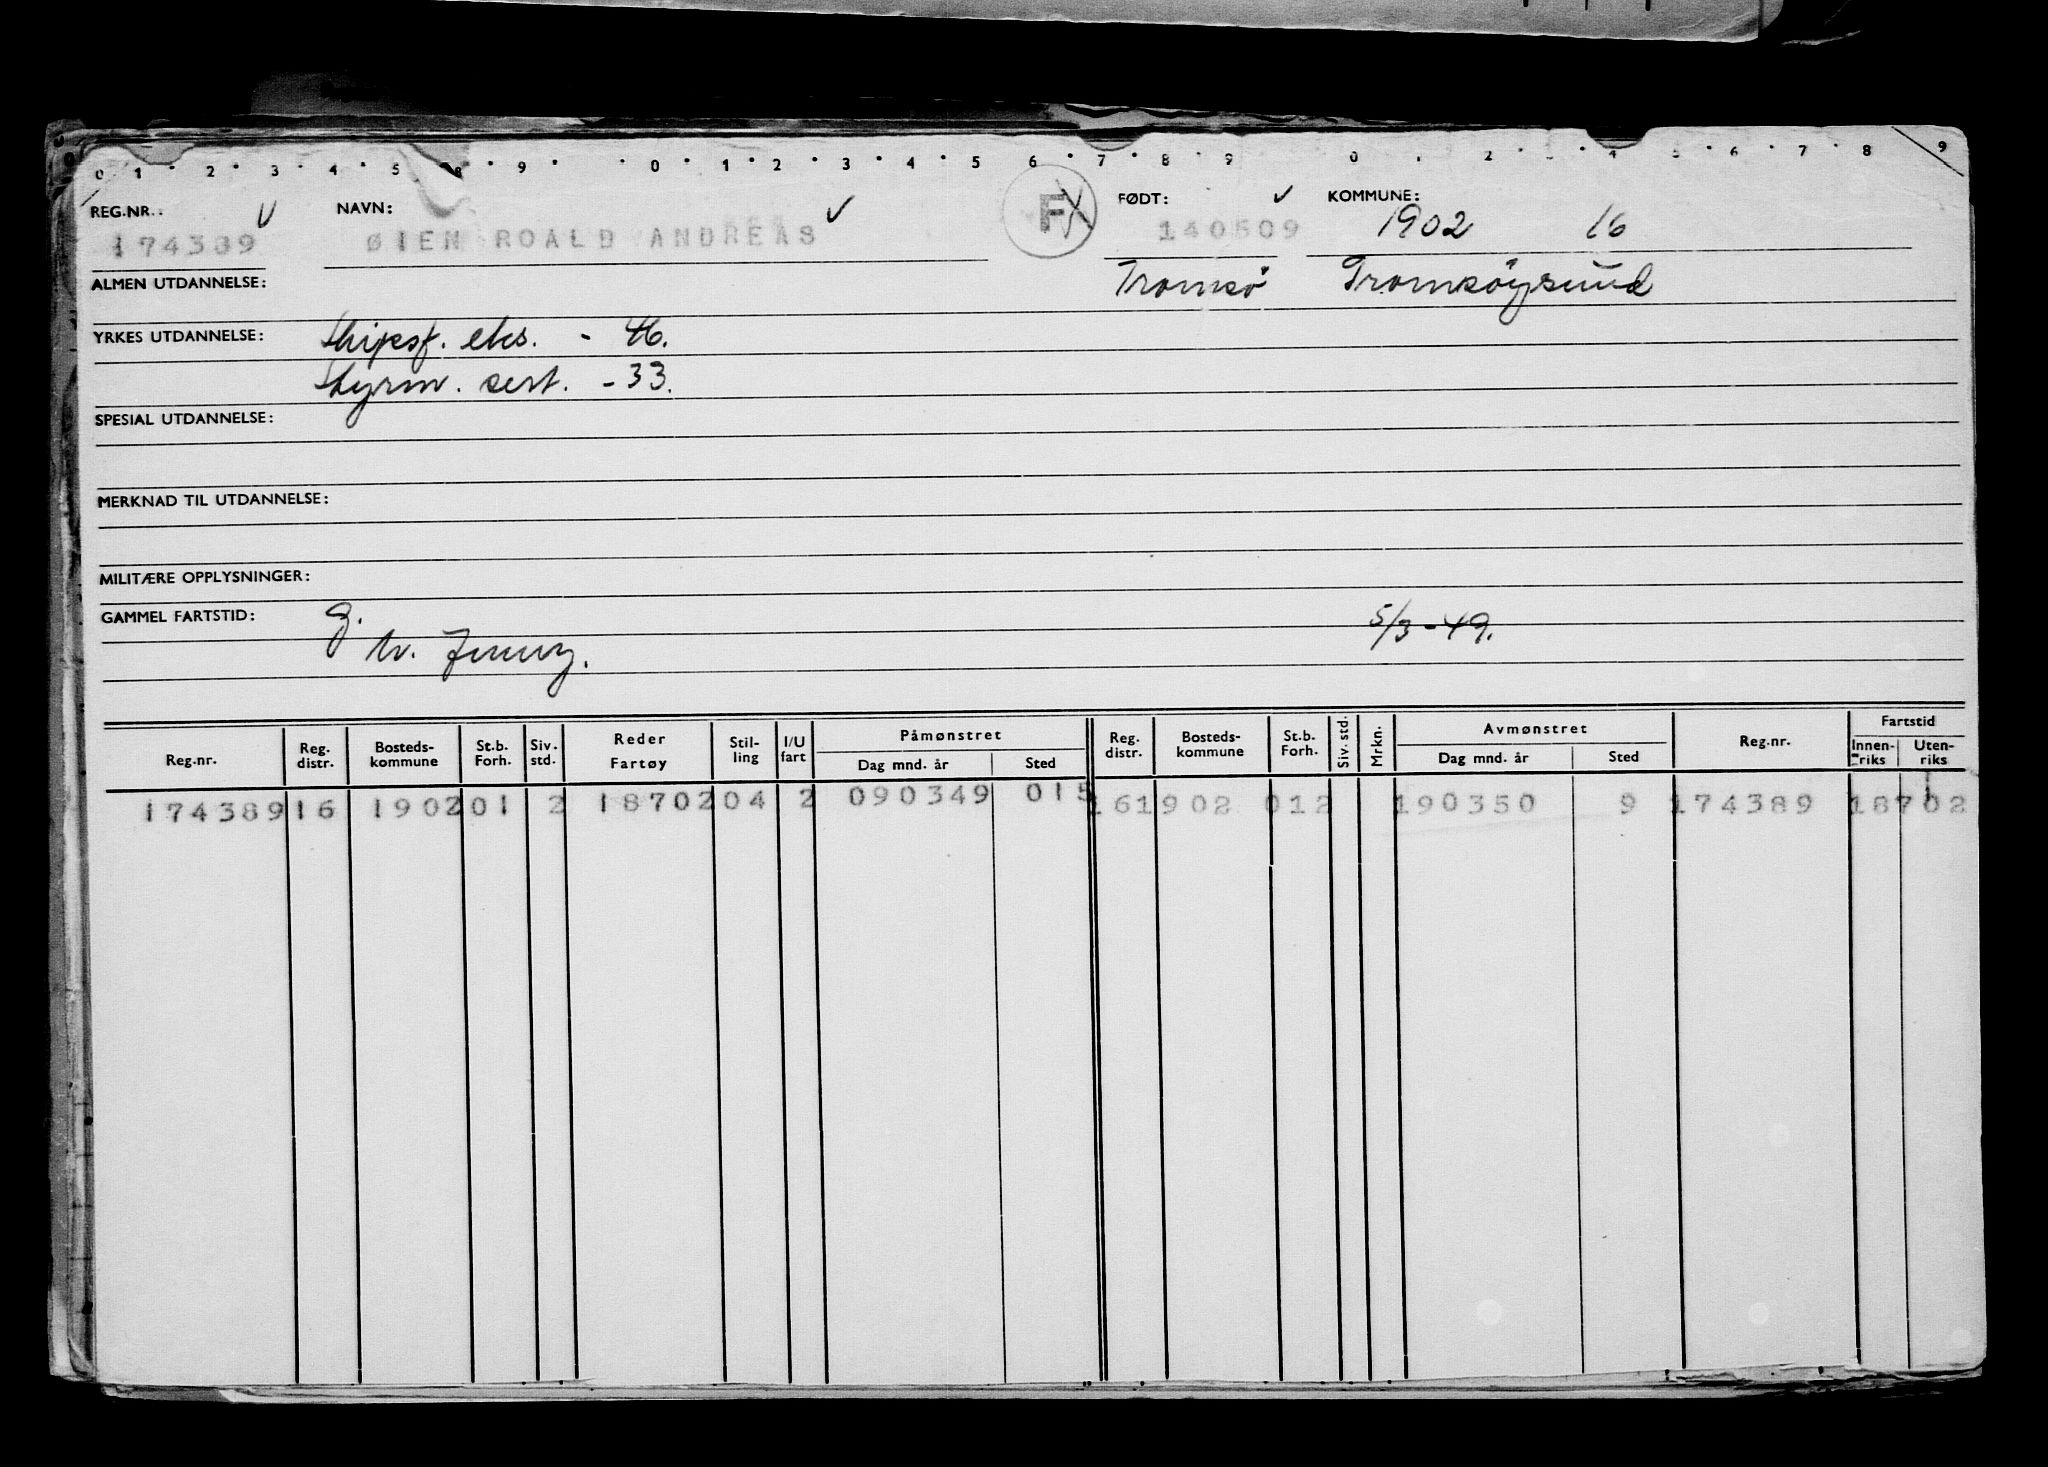 0 1 2 3 4 5 8 9 0 1 2 3 4 5 6 7 8 9 0 2 4 5 6 7 8 9
REG.NR.: NAVN: F FØDT: KOMMUNE:
174389 ØIEN ROALD ANDREAS 140509 1902 16
ALMEN UTDANNELSE: Tromsö Tromsöysund
YRKES UTDANNELSE: Skipsf. eks. - 46.
Styrm. sert. - 33.
SPESIAL UTDANNELSE:
MERKNAD TIL UTDANNELSE:
MILITÆRE OPPLYSNINGER:
GAMMEL FARTSTID: 5/3-49.
Reg.nr. Reg. distr. Bosteds- kommune St.b. Forh. Siv. std. Reder Fartøy Stil- ling I/U fart Påmønstret Dag mnd. år Sted Reg. distr. Bosteds- kommune St.b. Forh. Siv. std. Mrkn. Avmønstret Dag mnd. år Sted Reg.nr. Fartstid Innen- riks Uten- riks
174389 16 1902 01 2 18702 04 2 090349 015 161902 012 190350 9 174389 18702